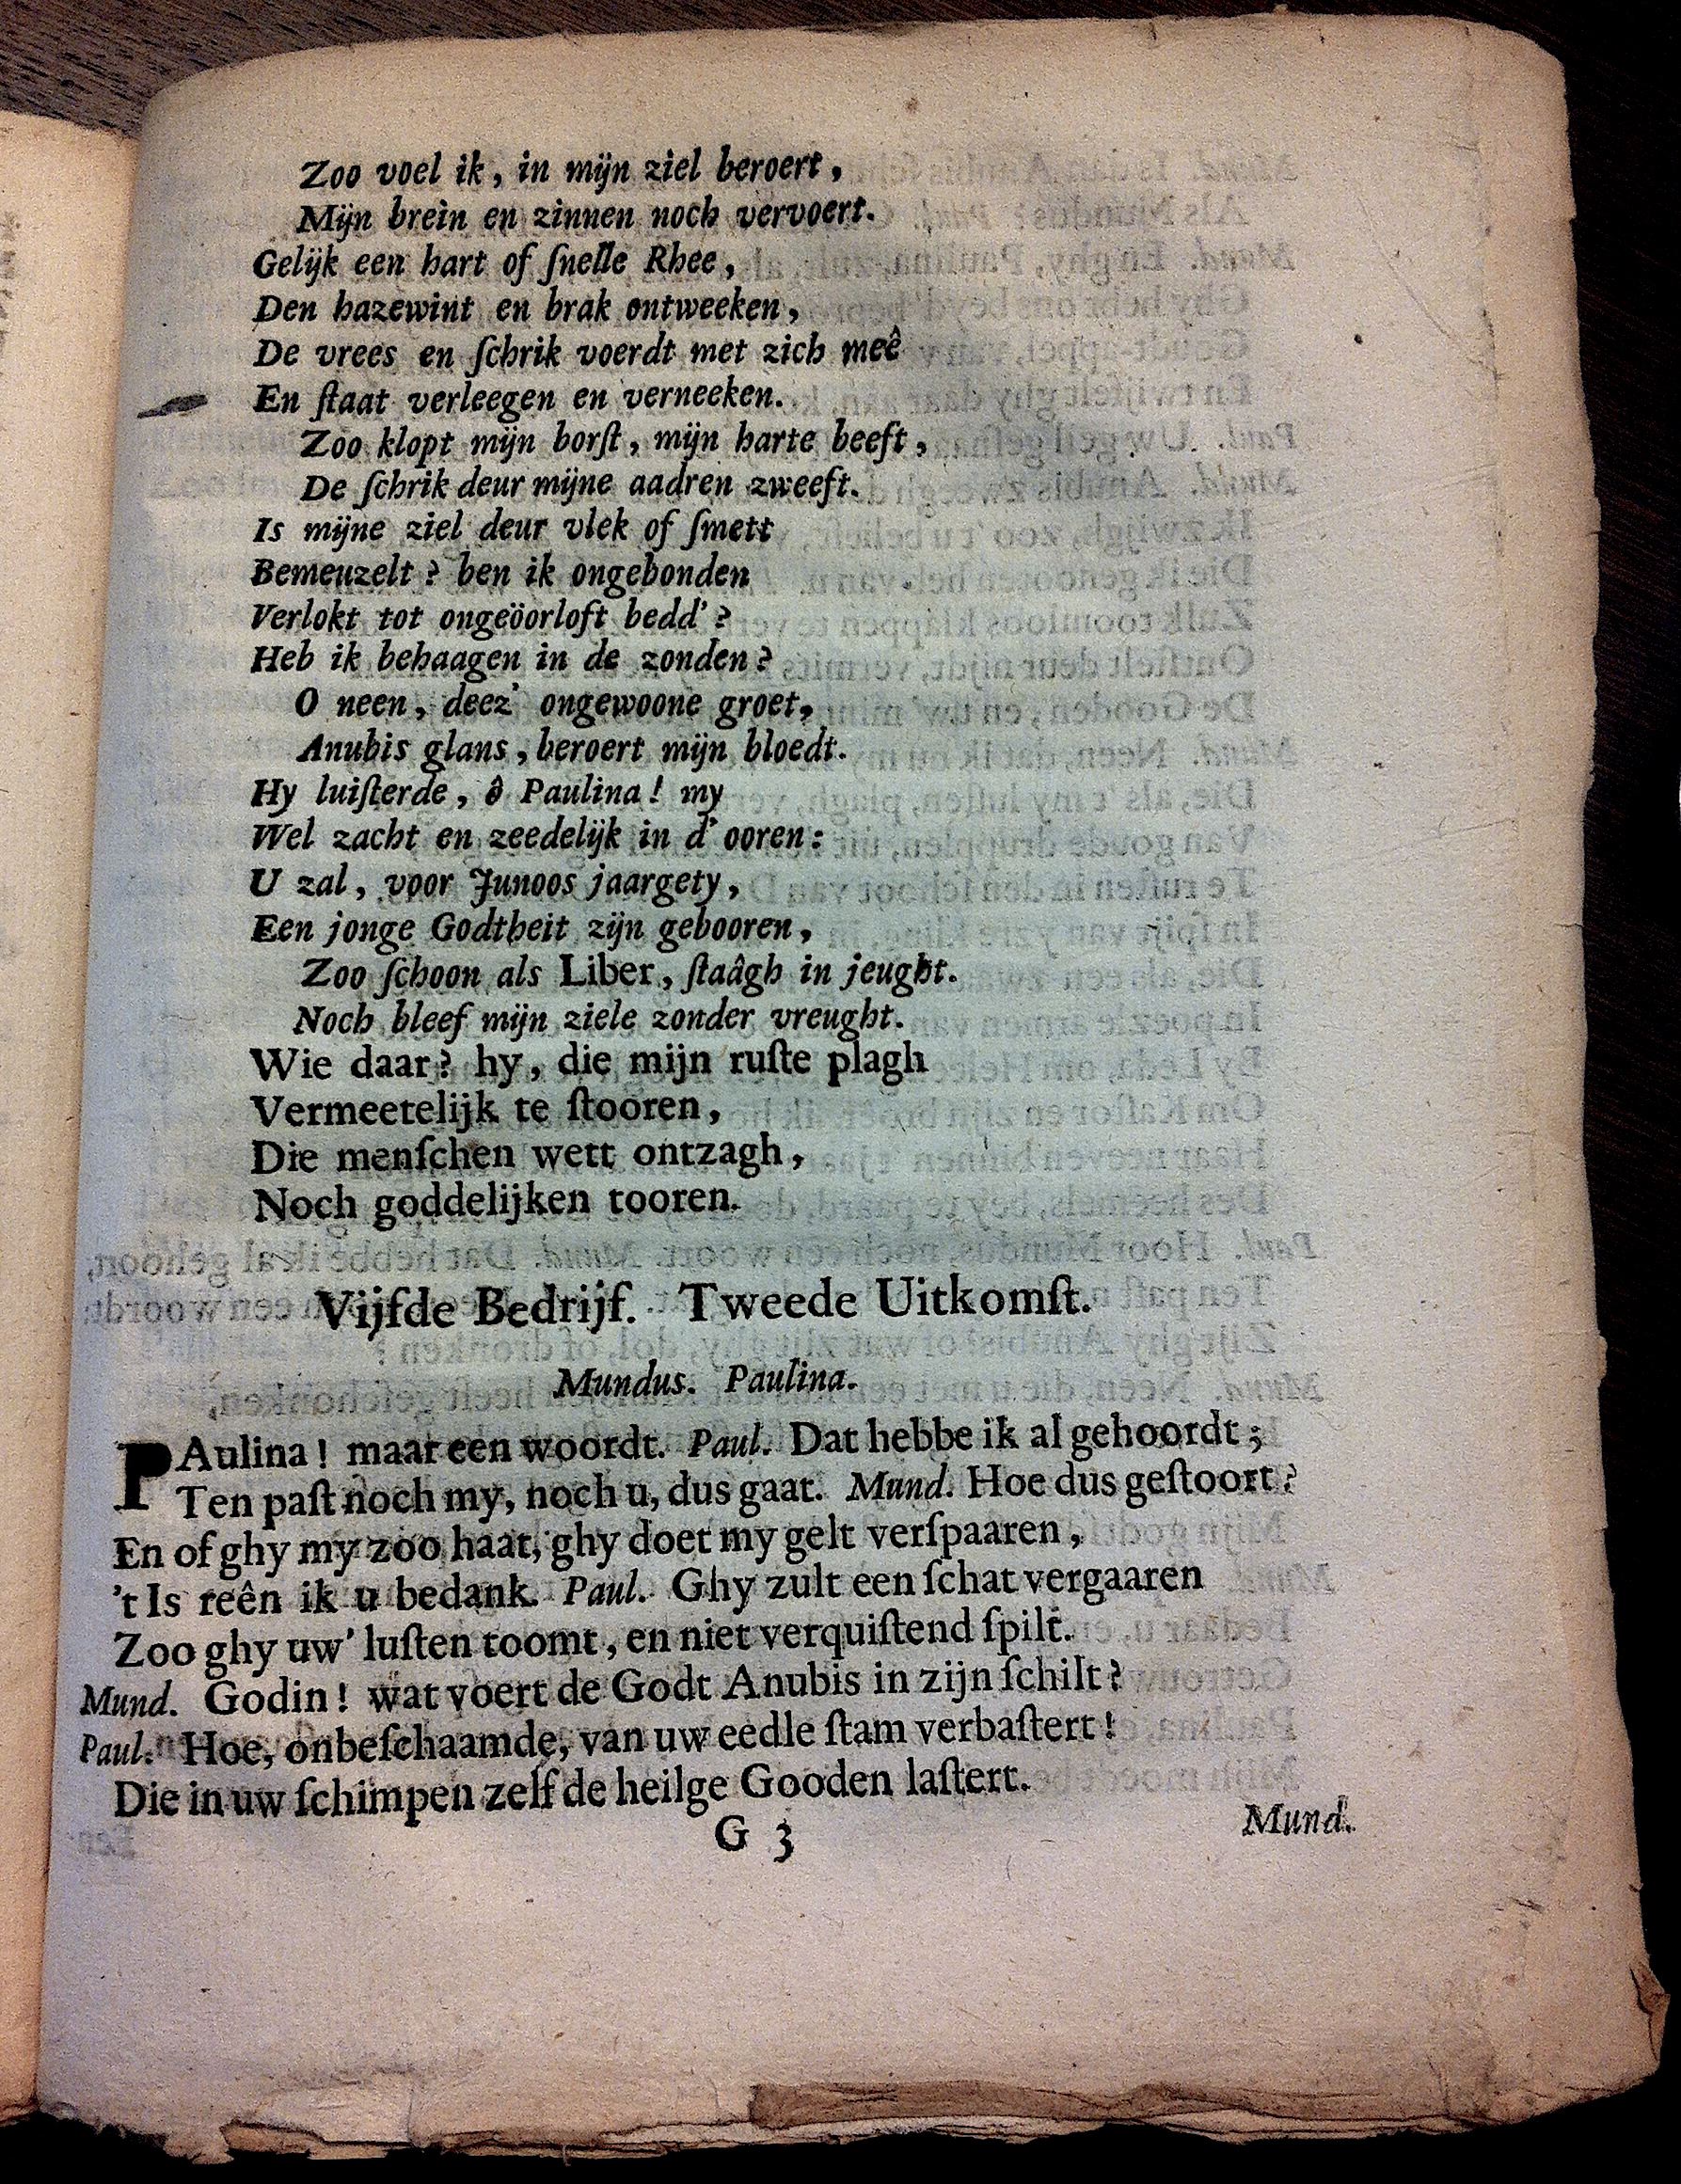 Zoo voel ik, in mijn ziel beroert,
Mijn brein en zinnen noch vervoert.
Gelijk een hart of ſnelle Rhee,
Den hazewint en brak ontweeken,
De vrees en ſchrik voerdt met zich meê
En ſtaat verleegen en verneeken.
Zoo klopt mijn borſt, mijn harte beeft,
De ſchrik deur mijne aadren zweeft.
Is mijne ziel deur vlek of ſmett
Bemeuzelt? ben ik ongebonden
Verlokt tot ongeöorloft bedd'?
Heb ik behaagen in de zonden?
O neen, deez' ongewoone groet,
Anubis glans, beroert mijn bloedt.
Hy luiſterde, ô Paulina! my
Wel zacht en zeedelijk in d' ooren:
U zal, voor Junoos jaargety,
Een jonge Godtheit zijn gebooren,
Zoo ſchoon als Liber, ſtaâgh in jeught.
Noch bleef mijn ziele zonder vreught.
Wie daar? hy, die mijn ruſte plagh
Vermeetelijk te ſtooren,
Die menſchen wett ontzagh,
Noch goddelijken tooren.
Vijfde Bedrijf. Tweede Uitkomſt.
Mundus. Paulina.
PAulina! maar een woordt. Paul. Dat hebbe ik al gehoordt;
Ten paſt noch my, noch u, dus gaat. Mund. Hoe dus geſtoort?
En of ghy my zoo haat, ghy doet my gelt verſpaaren,
't Is reên ik u bedank. Paul. Ghy zult een ſchat vergaaren
Zoo ghy uw' luſten toomt, en niet verquiſtend ſpilt.
Mund. Godin! wat voert de Godt Anubis in zijn ſchilt?
Paul. Hoe, onbeſchaamde, van uw eedle ſtam verbaſtert!
Die in uw ſchimpen zelf de heilge Gooden laſtert.
G 3
Mund.